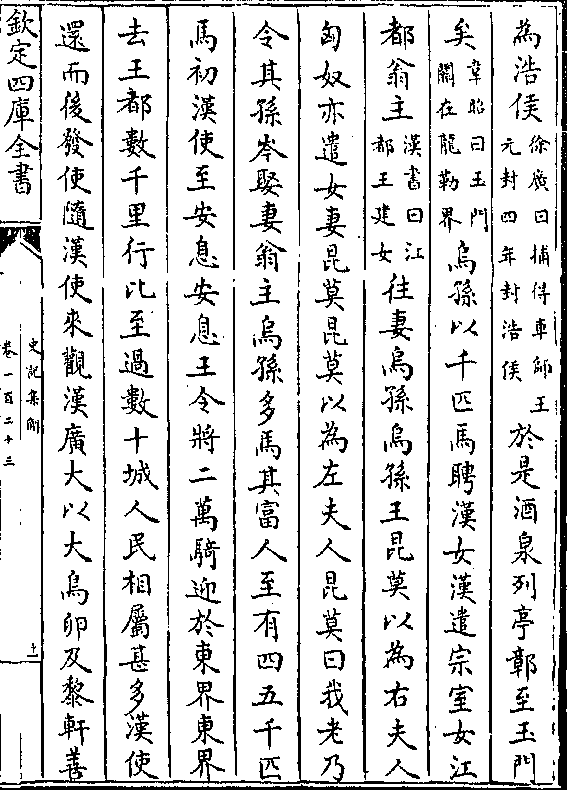 為浩侯徐廣曰捕得車師王元封四年封浩侯於是酒泉列亭鄣至玉門
矣韋昭曰玉門關在龍勒界烏孫以千匹馬聘漢女漢遣宗室女江
都翁主漢書曰江都王建女往妻烏孫烏孫王昆莫以為右夫人
匈奴亦遣女妻昆莫昆莫以為左夫人昆莫曰我老乃
令其孫岑娶妻翁主烏孫多馬其富人至有四五千匹
馬初漢使至安息安息王令將二萬騎迎於東界東界
去王都數千里行比至過數十城人民相屬甚多漢使
還而後發使隨漢使來觀漢廣大以大鳥卵及黎軒善
欽定四庫全書
史記集解
卷一百二十三
十一